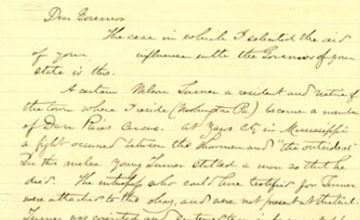 Dear Governor
The case in which I solicited the aid
of your influence with the Governor of your
state is this.
A certain Nelson Turner a resident and native of
the town where I reside (Washington Pa) became a member
of Dan Rices Circus. At Yazo City in Mississippi
a fight occurred between the showmen and "the outsiders"
In the melee young Turner stabbed a man so that he
died. The who could have testified for Turner
were attached to this , and were not present at the trial
Turner was convicted and